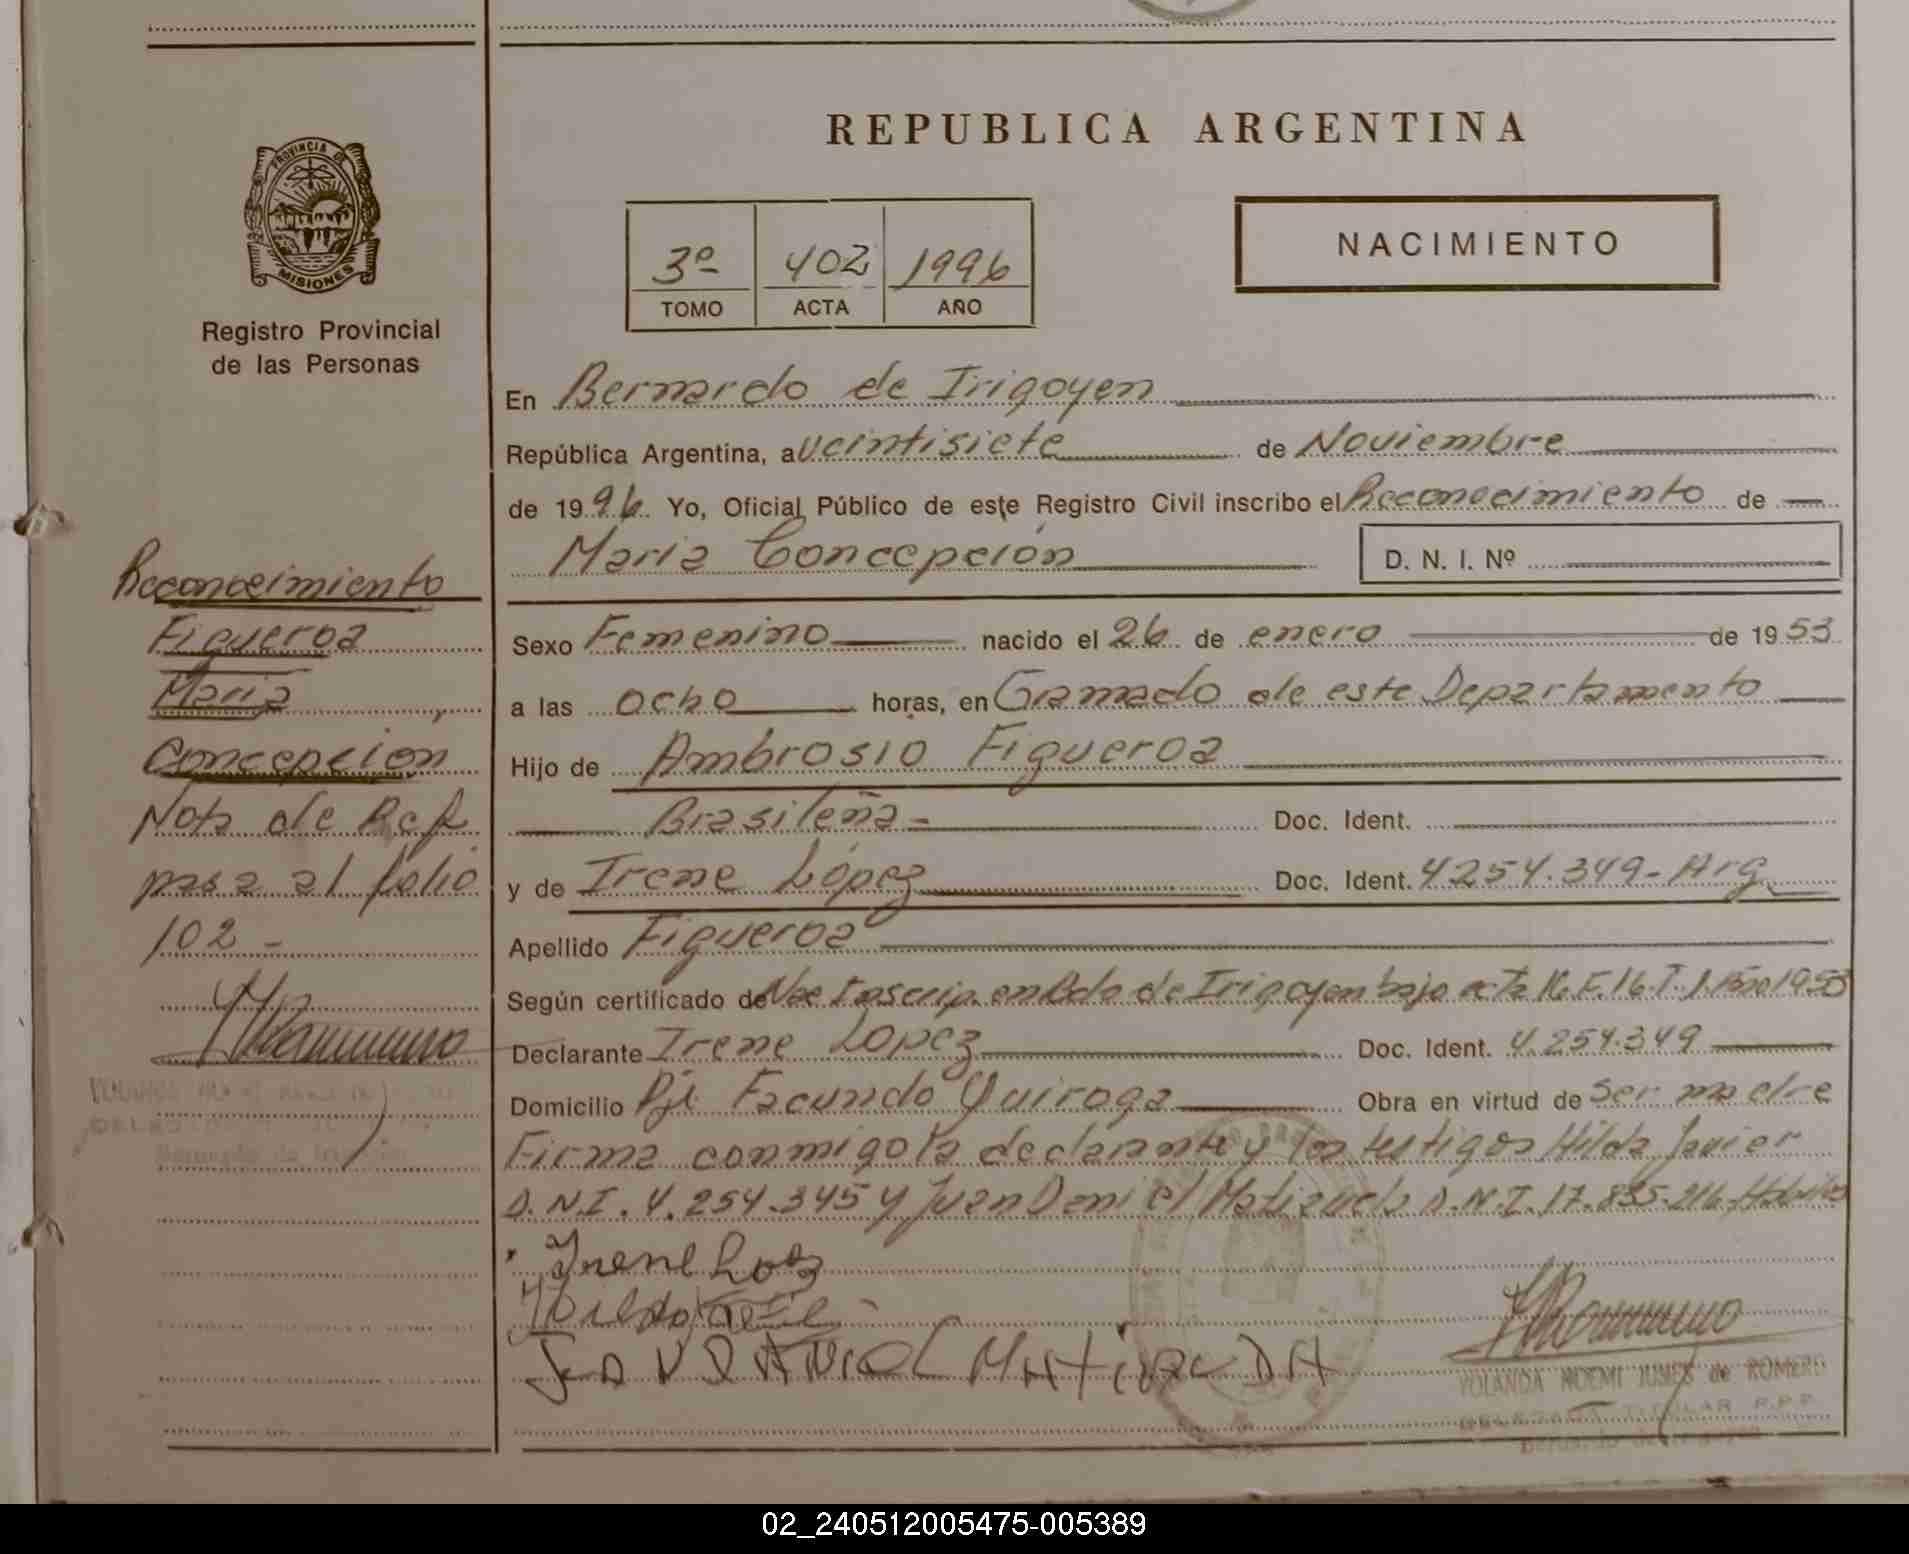 REPUBLICA ARGENTINA
PROVINCIA DE
MISIONES
Registro Provincial
de las Personas
3º 402 1996
TOMO ACTA AÑO
NACIMIENTO
En Bernardo de Irigoyen
República Argentina, a veintisiete de Noviembre
de 1996 Yo, Oficial Público de este Registro Civil inscribo el Reconocimiento de
Maria Concepción D. N. I. Nº
Sexo Femenino nacido el 26 de enero de 1953
a las ocho horas, en Gramado de este Departamento
Hijo de Ambrosio Figueroa
Brasileña Doc. Ident.
y de Irene López Doc. Ident. 4254.349- Arg.
Apellido Figueroa
Según certificado de Nac Inscrip. en Bdo de Irigoyen bajo acta 16. F. 16 T. 1. Año 1953
Declarante Irene Lopez Doc. Ident. 4.254.349
Domicilio Pje Facundo Quiroga Obra en virtud de Ser madre
Firma conmigo la declarante y los testigos Hilda Javier
D.N.I. 4.254.345 y Juan Daniel D.N.I. 17.835.216
Irene
YOLANDA NOEMI de ROMERO
DELEGADA TITULAR R.P.P.
Bernardo de Irigoyen
Reconocimiento
Figueroa
Maria
Concepcion
Nota de Ref
pasa al folio
102 -
Bernardo de Irigoyen
02_240512005475-005389